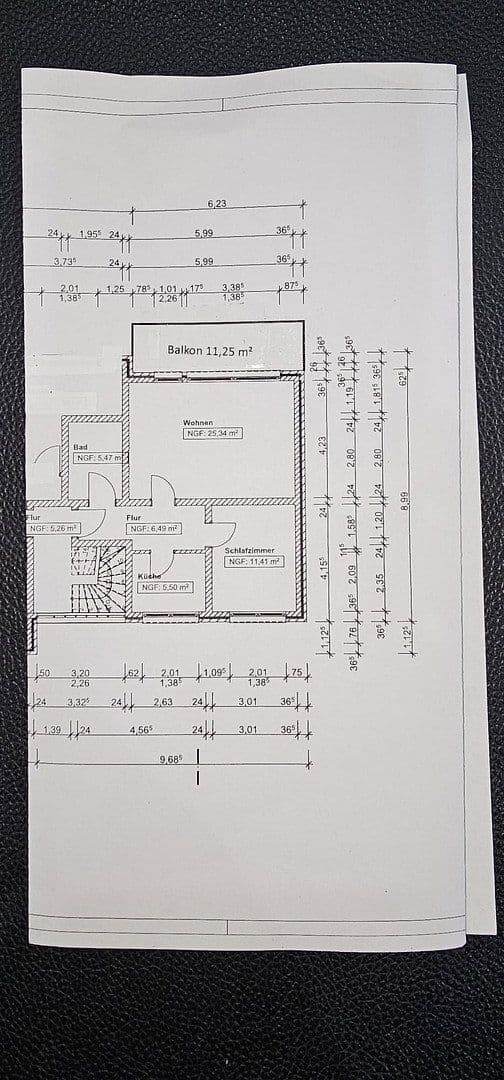 6,23
24 1,95⁵ 24 5,99 36⁵
3,73⁵ 24 5,99 36⁵
2,01 1,25 78⁵ 1,01 17⁵ 3,38⁵ 87⁵
1,38⁵ 2,26 1,38⁵
Balkon 11,25 m²
Wohnen
NGF: 25,34 m²
Bad
NGF: 5,47 m
Flur
NGF: 5,26 m²
Flur
NGF: 6,49 m²
Schlafzimmer
NGF: 11,41 m²
Küche
NGF: 5,50 m²
36⁵
26
36⁵
4,23
24
4,15⁵
1,12⁵
36⁵
26
36⁵
1,19
24
2,80
24
1,58⁵
11⁵
2,09
36⁵
76
36⁵
36⁵
1,81⁵
24
2,80
24
1,20
24
2,35
36⁵
62⁵
8,99
1,12⁵
50 3,20 62 2,01 1,09⁵ 2,01 75
2,26 1,38⁵ 1,38⁵
24 3,32⁵ 24 2,63 24 3,01 36⁵
1,39 24 4,56⁵ 24 3,01 36⁵
9,68⁵